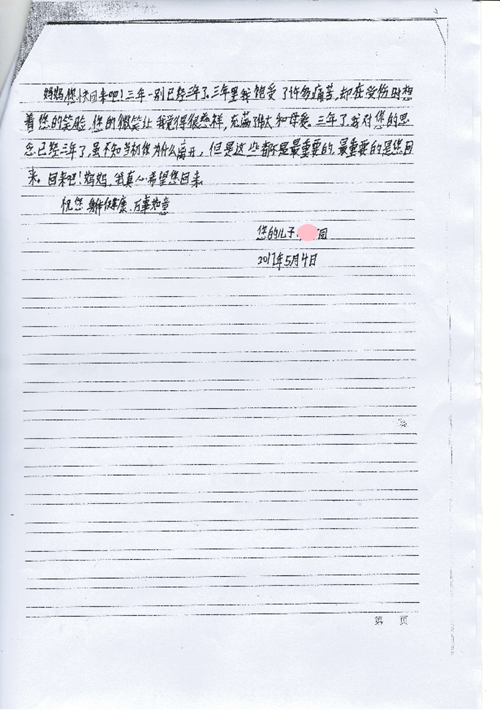 妈妈您快回来吧!三年一别已经三年了、三年里我饱受了许多痛苦,却在受伤时想
着您的笑脸,您的微笑让我觉得很慈祥,充满伟大和母爱。三年了,我对您的思
念已经三年了,虽不知当初您为什么离开,但是这些都不是最重要的,最重要的是您回
来。回来吧!妈妈,我真心希望您回来。
祝您 身体健康、万事如意
您的儿子: 国
2017年5月4日
第 页